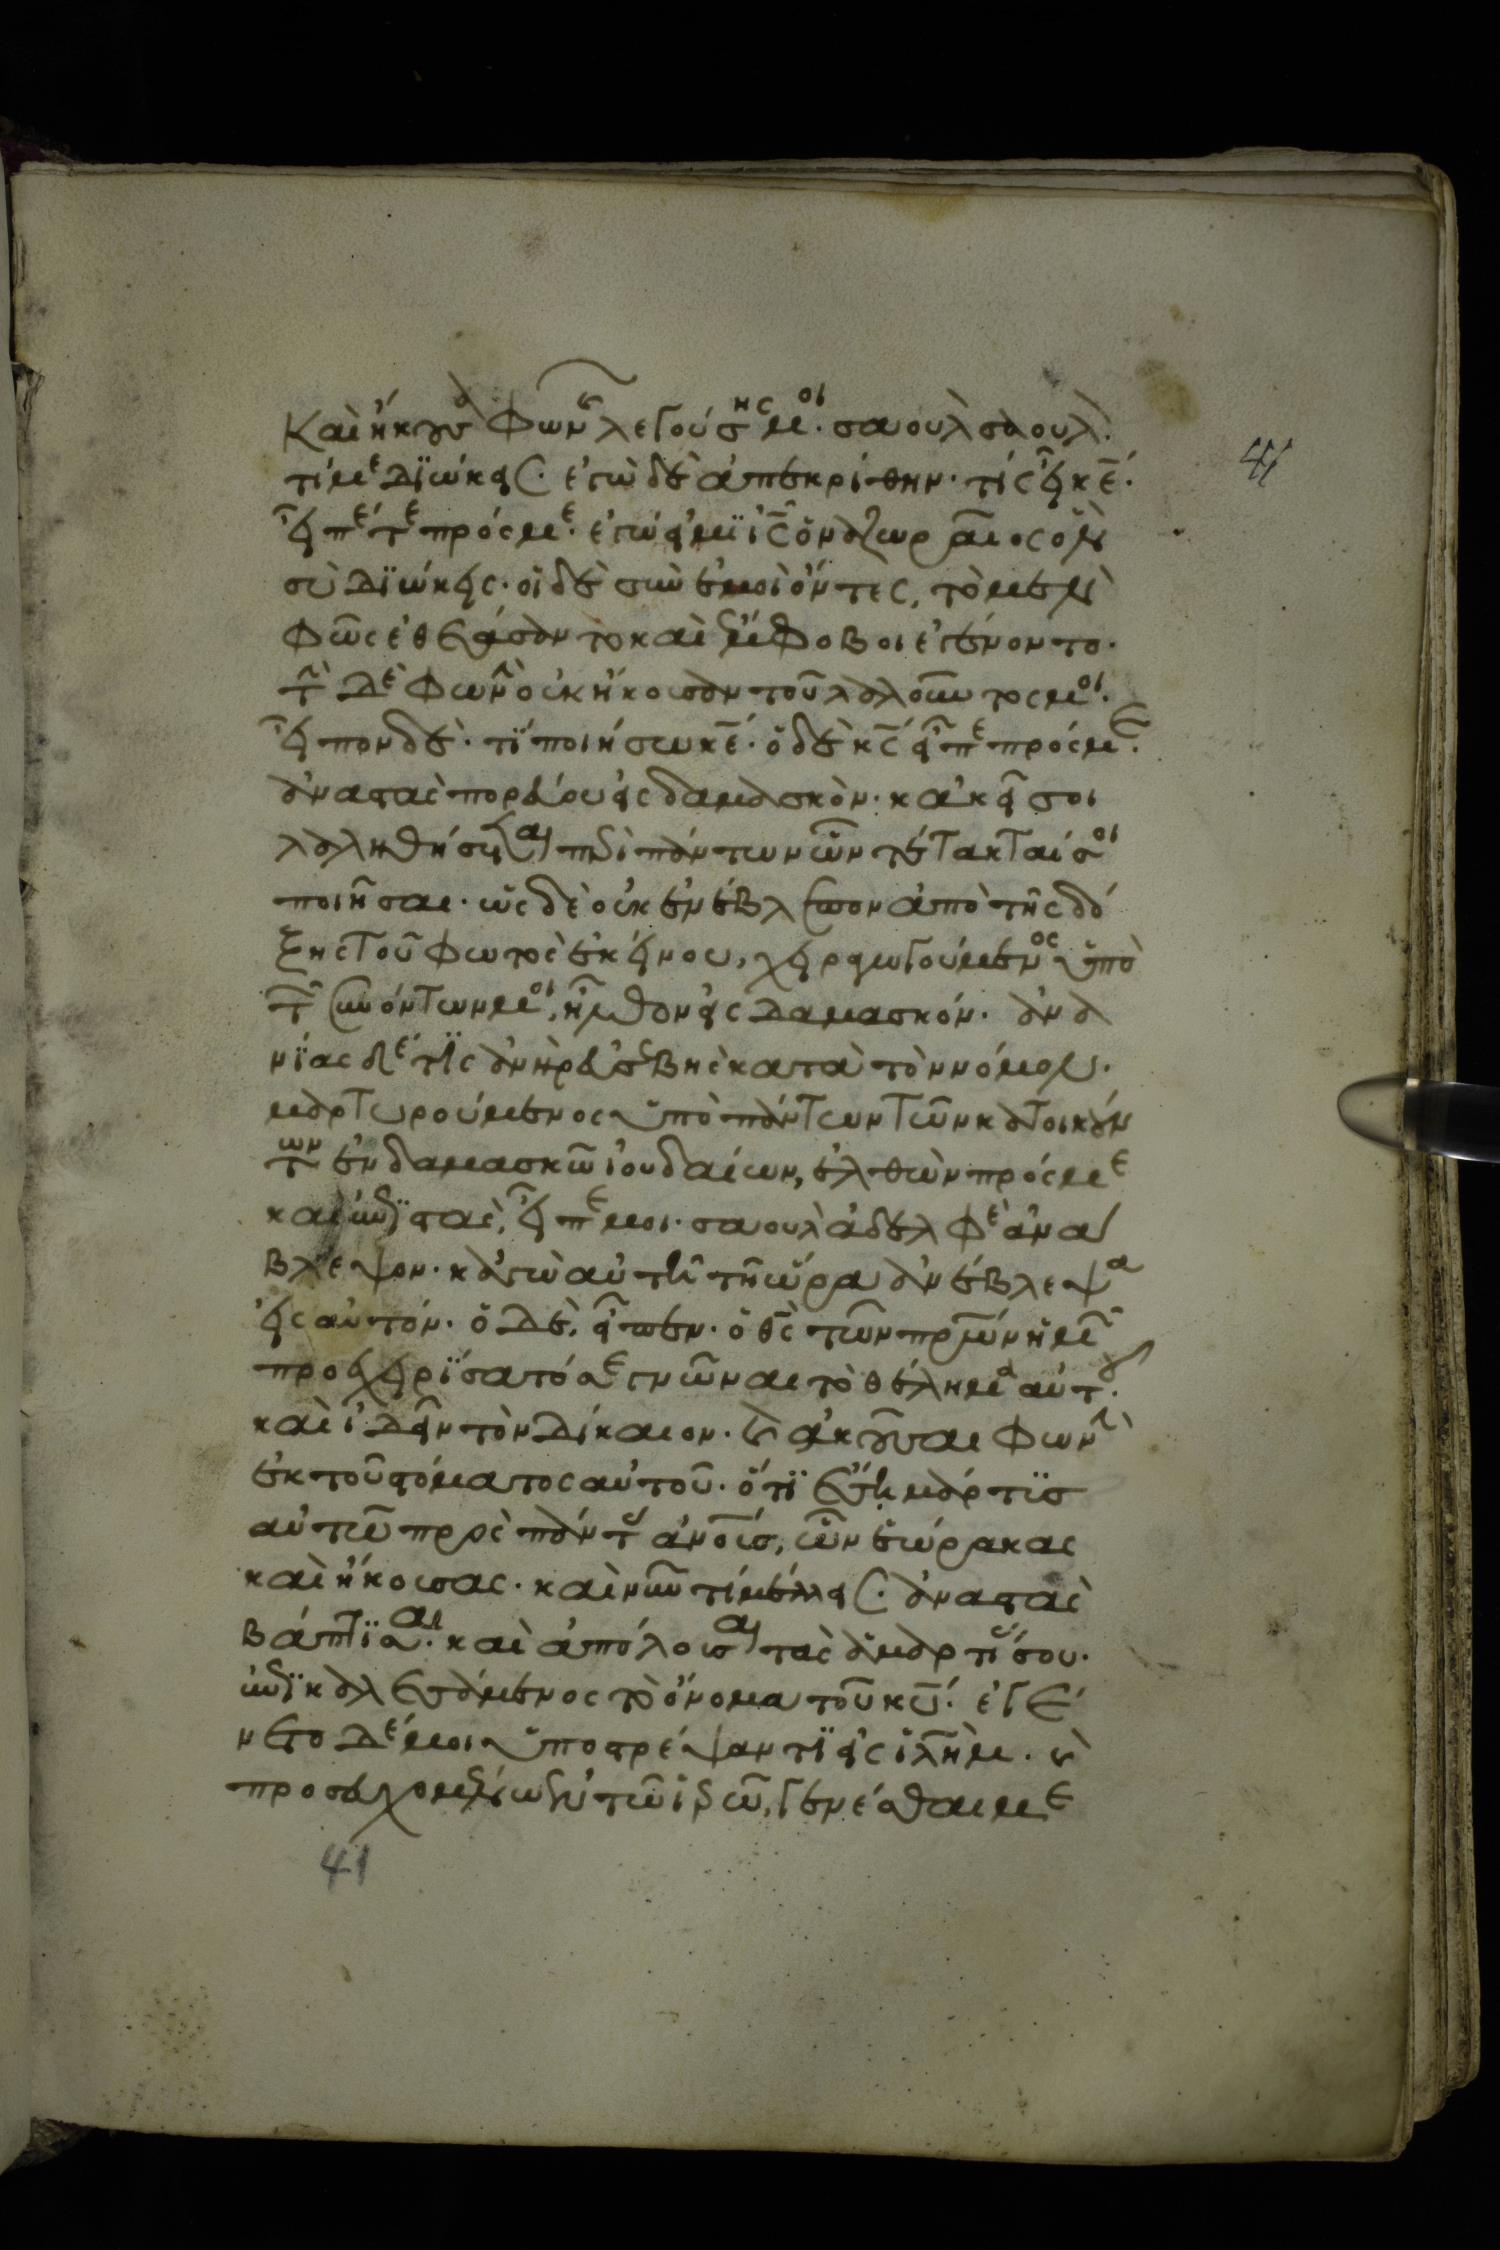 Καὶ ἤκουσα φωνῆς λεγούσης μοι· σαοὺλ σαούλ·
τί με διώκεις· ἐγὼ δὲ ἀπεκρίθην· τίς εἶ κε·
εἶπέ τε πρός με· ἐγώ εἰμϊ ις ὁ ναζωραῖος ὃν
σὺ διώκεις· οἱ δὲ σὺν ἐμοὶ ὄντες, τὸ μὲν
φῶς ἐθεάσαντο καὶ ἔμφοβοι ἐγένοντο·
τὴν δὲ φωνὴν οὐκ ἤκουσαν τοῦ λαλοῦντος μοι·
εἶπον δέ· τϊ ποιήσω κε· ὁ δὲ κς εἶπε πρός με·
ἀναστὰς πορεύου εἰς δαμασκὸν· κἀκεῖ σοι
λαληθήσεται περὶ πάντων ὧν τέτακταί σοι
ποιῆσαι· ὡς δὲ οὐκ ἐνέβλεπον ἀπὸ τῆς δό
ξης τοῦ φωτὸς ἐκείνου, χειραγωγούμενος ὑπὸ
τῶν συνόντων μοι, ἦλθον εἰς δαμασκόν· ἀνα
νϊας δέ τϊς ἀνὴρ εὐσεβὴς κατὰ τὸν νόμον·
μαρτυρούμενος ὑπὸ πάντων τῶν κατοικούν
των ἐν δαμασκῶ ἰουδαίων, ἐλθὼν πρός με
καὶ ἐπϊστὰς, εἶπέ μοι· σαοὺλ ἀδελφὲ ἀνά
βλεψον· κἀγὼ αὐτῆ τῆ ὥρα ἀνέβλεψα
εἰς αὐτόν· ὁ δὲ, εἶπεν· ὁ θς τῶν πρων ἡμῶν
προεχειρϊσατό σε γνῶναι τὸ θέλημα αὐτοῦ·
καὶ ἰδεῖν τὸν δίκαιον· καὶ ἀκοῦσαι φωνὴν
ἐκ τοῦ στόματος αὐτοῦ· ὅτϊ ἔση μάρτϊς
αὐτῶ πρὸς πάντας ἀνοῖς, ὧν ἑώρακας
καὶ ἤκουσας· καὶ νῦν τί μέλλεις· ἀναστὰς
βάπτϊσαι· καὶ ἀπόλουσαι τὰς ἁμαρτίας σου·
ἐπϊκαλεσάμενος τὸ ὄνομα τοῦ κυ· ἐγέ
νετο δέ μοι ὑποστρέψαντϊ εἰς ιλημ· καὶ
προσευχομένου μου ἐν τῶ ἱερῶ, γενέσθαι με
41